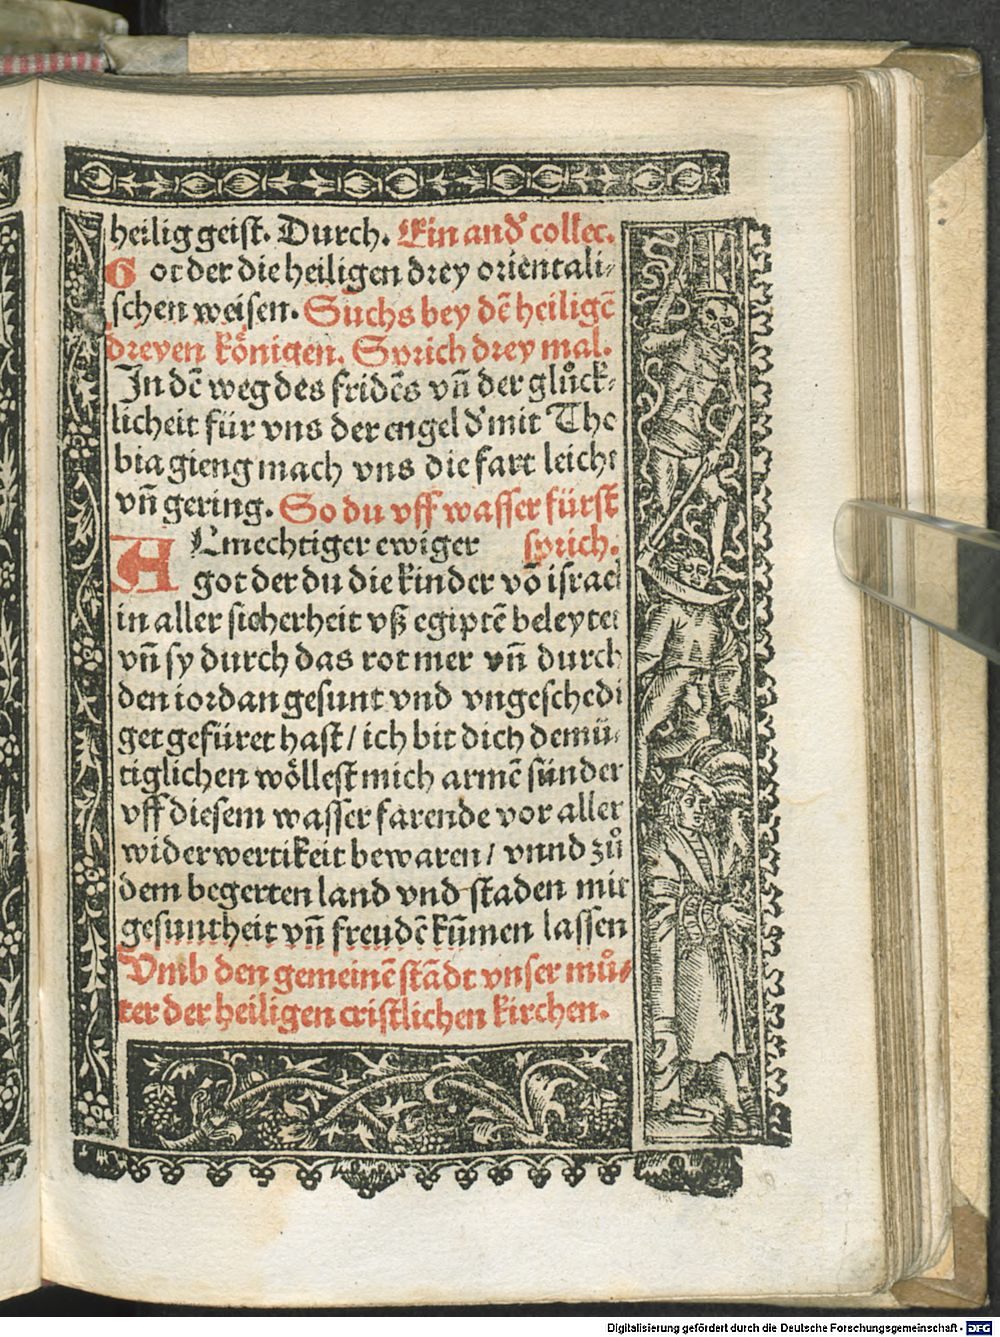 heilig geist. Durch. Ein and̾ collec.
Got der die heiligen drey orientali⸗
schen weisen. Suchs bey dē heiligē
dreyen königen. Sprich drey mal.
In dē weg des fridēs vn̄ der glůck⸗
licheit für vns der engel d̾ mit Tho
bia gieng mach vns die fart leicht
vn̄ gering. So du vff wasser fürst
ALmechtiger ewiger sprich.
got der du die kinder vō israel
in aller sicherheit vß egiptē beleytet
vn̄ sy durch das rot mer vn̄ durch
den iordan gesunt vnd vngeschedi
get gefüret hast / ich bit dich demü⸗
tiglichen wöllest mich armē sünder
vff diesem wasser farende vor aller
widerwertikeit bewaren / vnnd zů
dem begerten land vnd staden mit
gesuntheit vn̄ freudē kūmen lassen
Vmb den gemeinē stādt vnser mů⸗
ter der heiligen cristlichen kirchen.
Digitalisierung gefördert durch die Deutsche Forschungsgemeinschaft - DFG